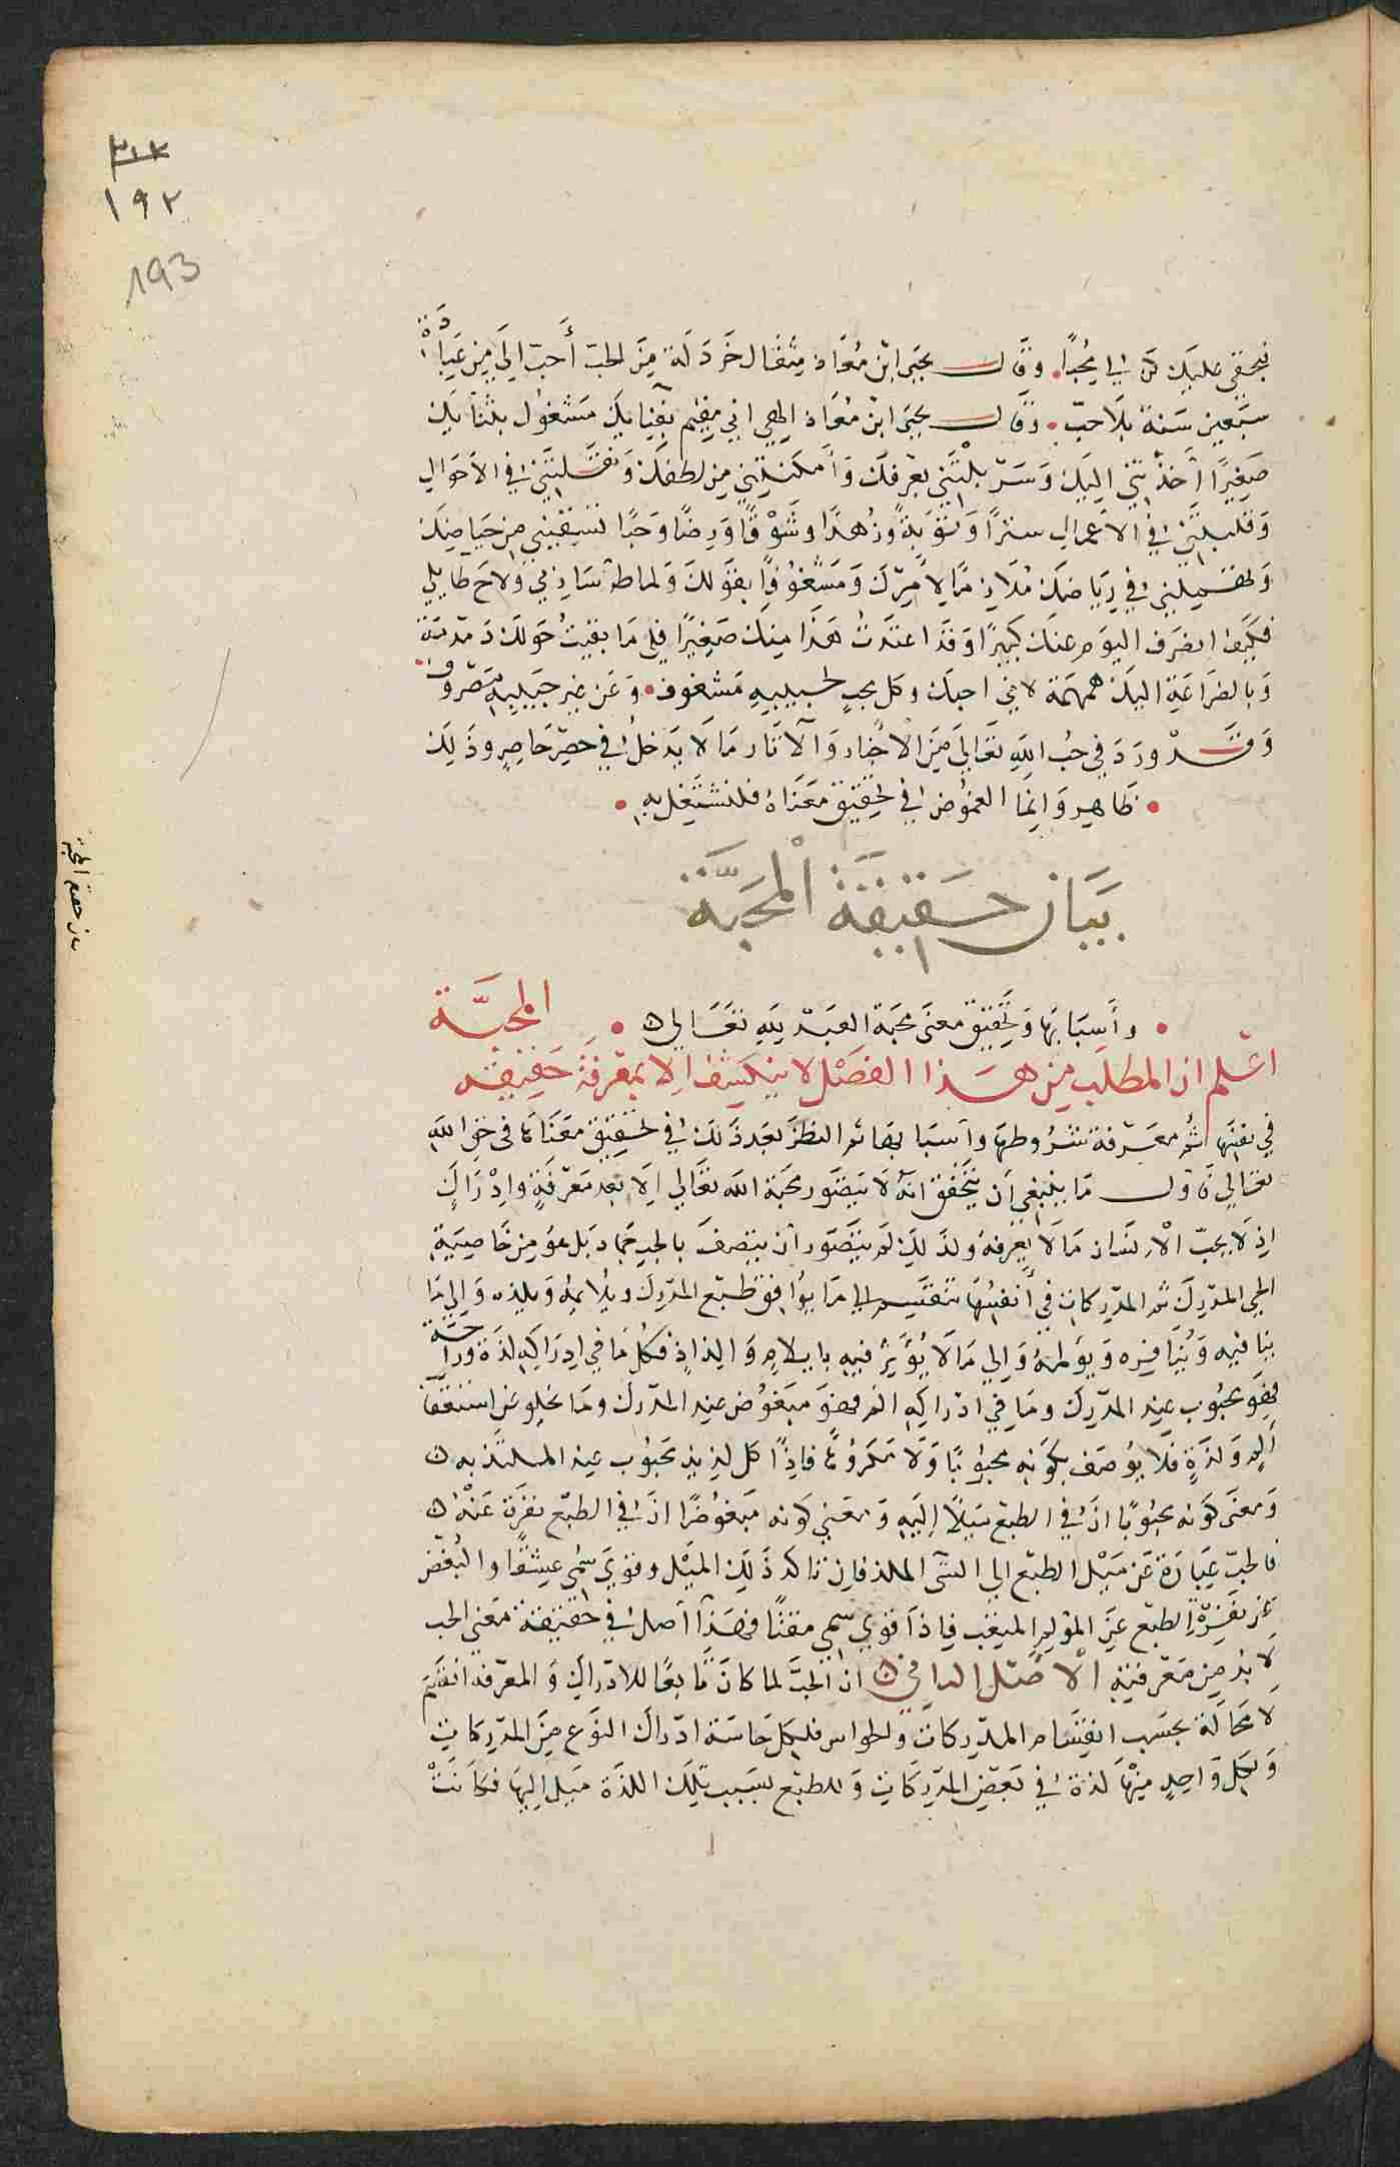 ١٩٢
193
فبحقي عليك كن لي محبًا. وقال يحيى ابن معاذ مثقال خردلة من الحب أحب الي من عبادة
سبعين سنة بلا حب. وقال يحيى ابن معاذ الهي اني مقيم بفنايك مشغول بثنايك
صغيرًا أخذتني اليك وسربلتني بمعرفتك وأمكنتني من لطفك ونقلتني في الاحوال
وقلبتني في الاعمال سترًا وتوبةً وزهدًا وشوقًا ورضًا وحبًا تسقيني من حياضك
وتهملني في رياضك ملازما لامرك ومشغوفًا بقولك ولما طر شاربي ولاح طايلي
فكيف انصرف اليوم عنك كبيرًا وقد اعتدت هذا منك صغيرًا فلي ما بقيت حولك دمدمة
وبالضراعة اليك همهمة لاني احبك وكل محب لحبيبه مشغوف. وعن غير حبيبه مصروف.
وقد ورد في حب الله تعالى من الأخبار والآثار ما لا يدخل في حصر حاصر وذلك
. ظاهر وانما الغموض في تحقيق معناه فلنشتغل به .
بيان حقيقة المحبة
بيان حقيقة المحبة
. وأسبابها وتحقيق معنى محبة العبد لله تعالى ه . المحبة
اعلم ان المطلب من هذا الفصل لا ينكشف الا بمعرفة حقيقة
في نفسها ثم معرفة شروطها وأسبابها ثم النظر بعد ذلك في تحقيق معناها في حق الله
تعالى فأول ما ينبغي أن يتحقق انه لا يتصور محبة الله تعالى الا بعد معرفة وادراك
اذ لا يحب الانسان ما لا يعرفه ولذلك لم يتصور أن يتصف بالحب جماد بل هو من خاصية
الحي المدرك ثم المدركات في أنفسها تنقسم الى ما يوافق طبع المدرك ويلايمه ويلذه والى ما
ينافيه وينافره ويؤلمه والى ما لا يؤثر فيه بايلام والذاذ فكل ما في ادراكه لذة وراحة
فهو محبوب عند المدرك وما في ادراكه الم فهو مبغوض عند المدرك وما يخلو عن استعقاب
ألم ولذة فلا يوصف بكونه محبوبًا ولا مكروهًا فاذًا كل لذيذ محبوب عند الملتذ به ه
ومعنى كونه محبوبًا ان في الطبع ميلًا اليه ومعنى كونه مبغوضًا ان في الطبع نفرة عنه ه
فالحب عبارة عن ميل الطبع الى الشئ الملذ فان تاكد ذلك الميل وقوي سمي عشقًا والبغض
عن نفرة الطبع عن المؤلم المتعب فاذا قوي سمي مقتًا فهذا أصل في حقيقة معنى الحب
لا بد من معرفته الأصل الثاني ه ان الحب لما كان تابعًا للادراك والمعرفة انقسم
لا محالة بحسب انقسام المدركات والحواس فلكل حاسة ادراك النوع من المدركات
ولكل واحد منها لذة في بعض المدركات وللطبع بسبب تلك اللذة ميل اليها فكانت